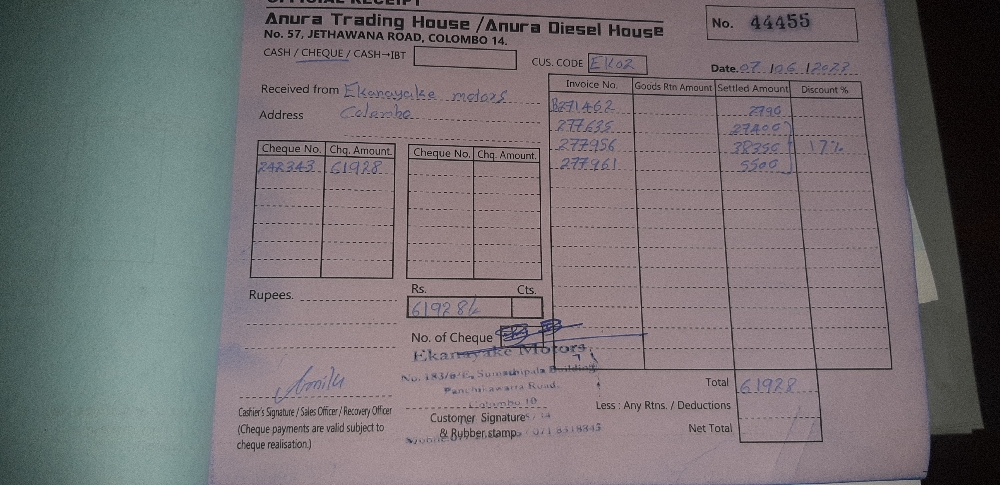 OFFICIAL RECEIPT
Anura Trading House / Anura Diesel House
No. 57, JETHAWANA ROAD, COLOMBO 14.
No. 44455
CASH / CHEQUE / CASH→IBT
CUS. CODE EK02
Date. 07/06/2023
Received from Ekanayake motors
Address Colombo
Invoice No. Goods Rtn Amount Settled Amount Discount %
B271462 2790
277635
277956 17%
277961 5500
Cheque No. Chq. Amount. Cheque No. Chq. Amount.
242343 61928
Rupees.
Rs. Cts.
61928/-
No. of Cheque
Ekanayake Motors
No. 183/6/E, Sumathipala Building
Panchikawatta Road,
Colombo 10
Total 61928
Less : Any Rtns. / Deductions
Net Total
Cashier's Signature / Sales Officer / Recovery Officer
(Cheque payments are valid subject to
cheque realisation.)
Customer Signature
& Rubber stamp
071 8318345